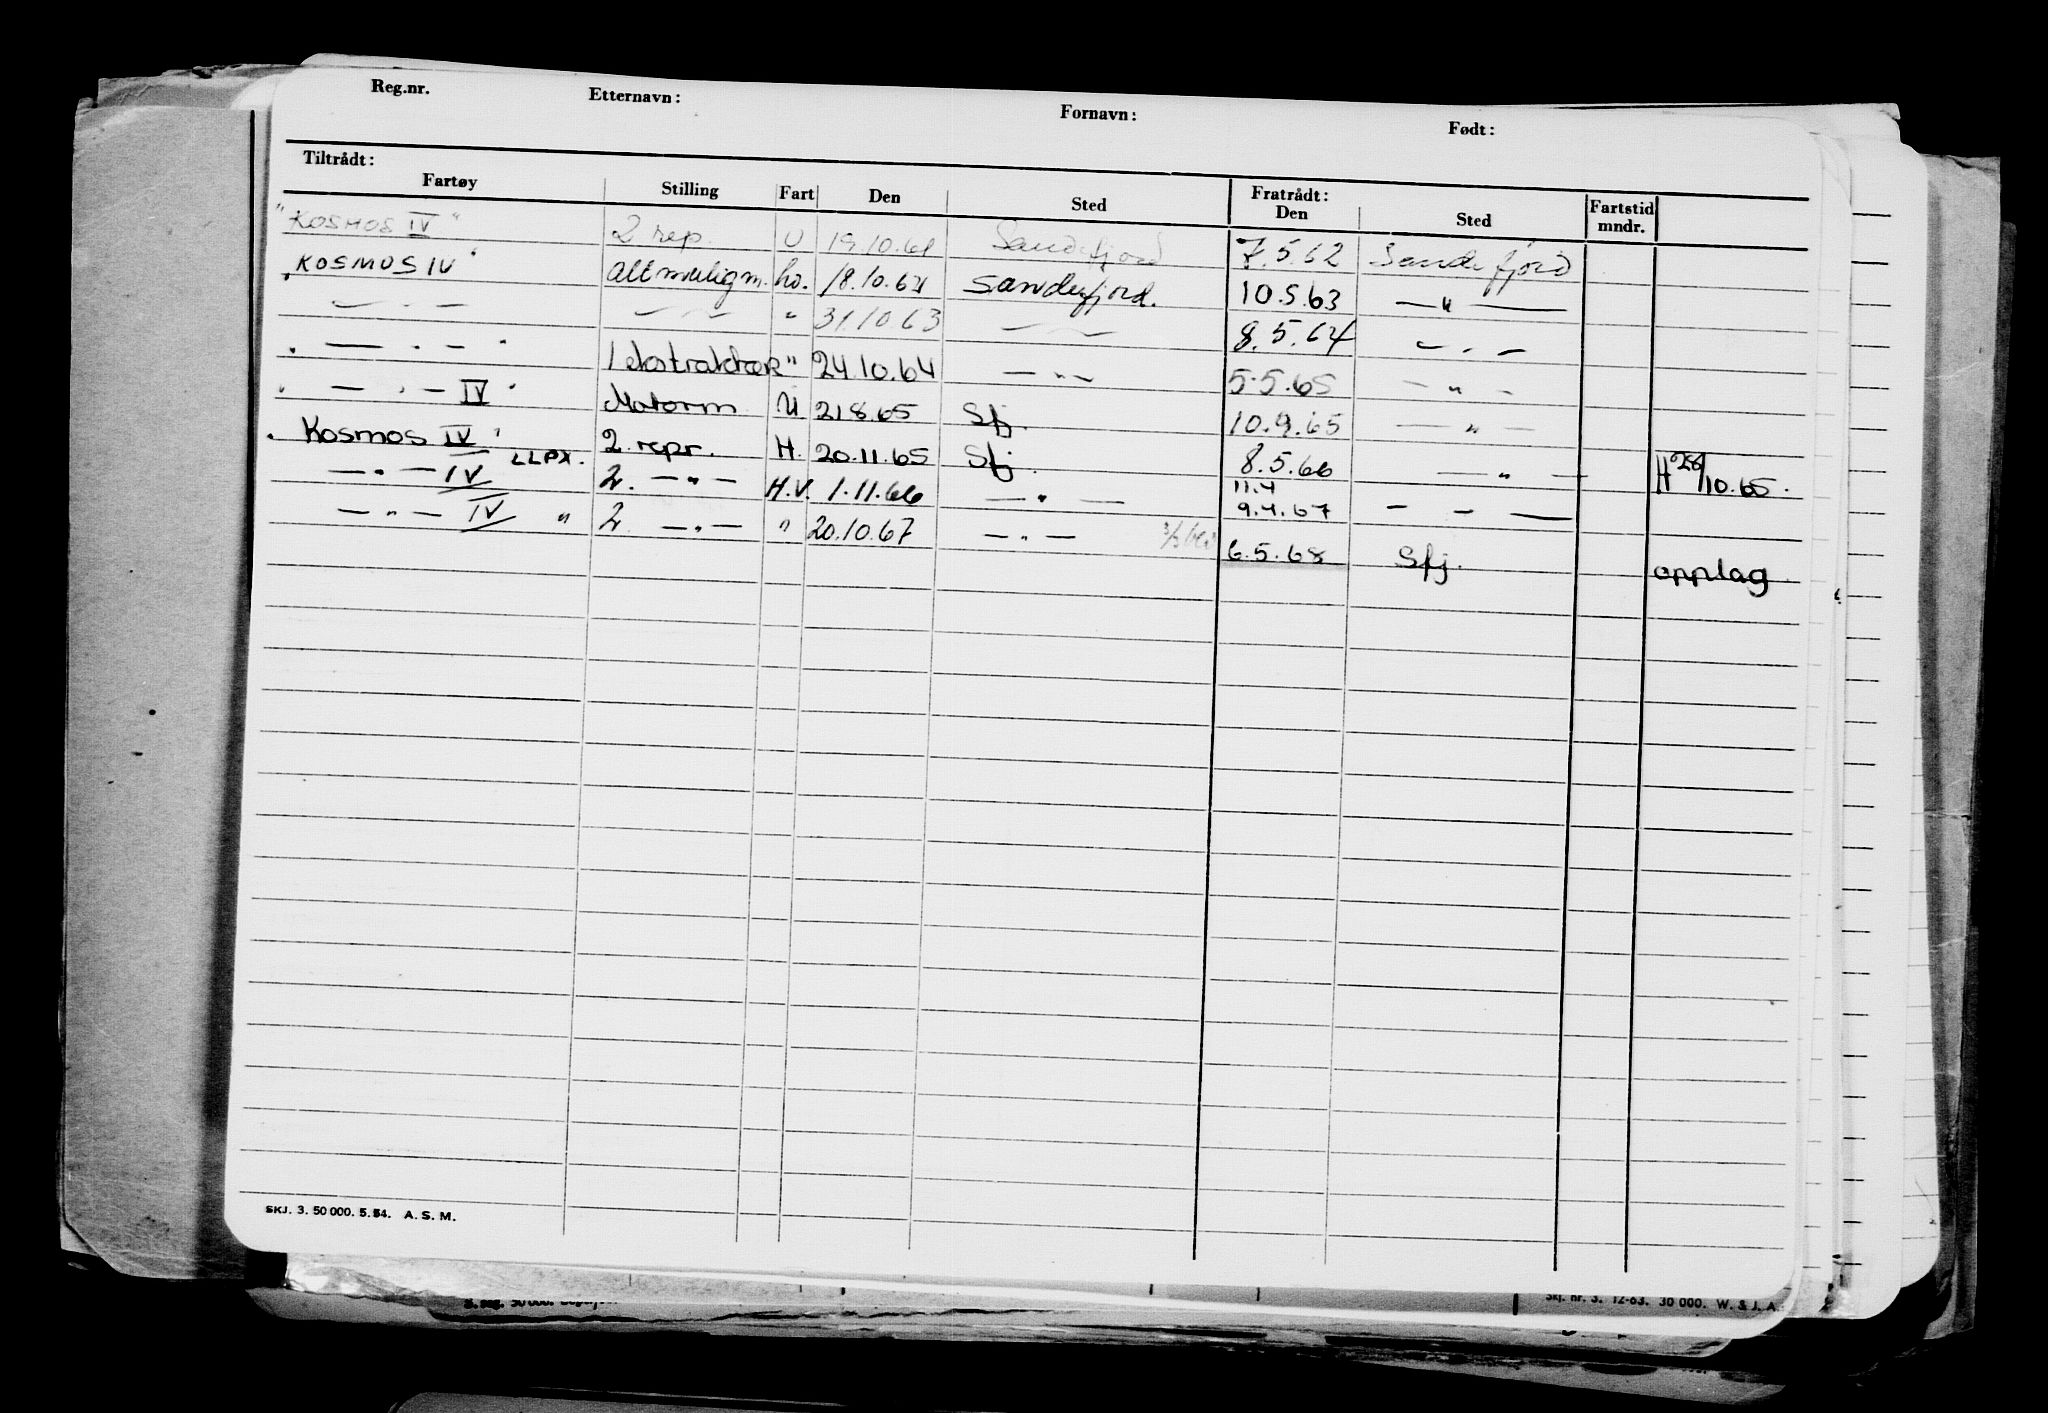 Reg.nr. Etternavn: Fornavn: Født:
Tiltrådt: Fratrådt:
Fartøy Stilling Fart Den Sted Den Sted Fartstid mndr.
"KOSMOS IV" 2 rep. U 19.10.61 Sandefjord 7.5.62 Sandefjord
"KOSMOS IV" altmuligm. hv. 18.10.62 Sandefjord. 10.5.63 — " —
— . — — " — " 31.10.63 — " — 8.5.64 — " —
" — . — " 1 ekstraktkok " 24.10.64 — " — 5.5.65 — " —
" — " — IV " Motorm U 21.8.65 Sfj. 10.9.65 — " —
"Kosmos IV" LLPX. 2. repr. H. 20.11.65 Sfj. 8.5.66 — " — H 28/10.65.
— " — IV 2. — " — H.V. 1.11.66 — " — 11.4 9.4.67 — — —
— " — IV " 2. — " — " 20.10.67 — " — 6.5.68 Sfj. opplag
SKJ. 3. 50 000. 5.54. A. S. M.
Skj. nr. 3. 12-63. 30 000. W. & J. A.